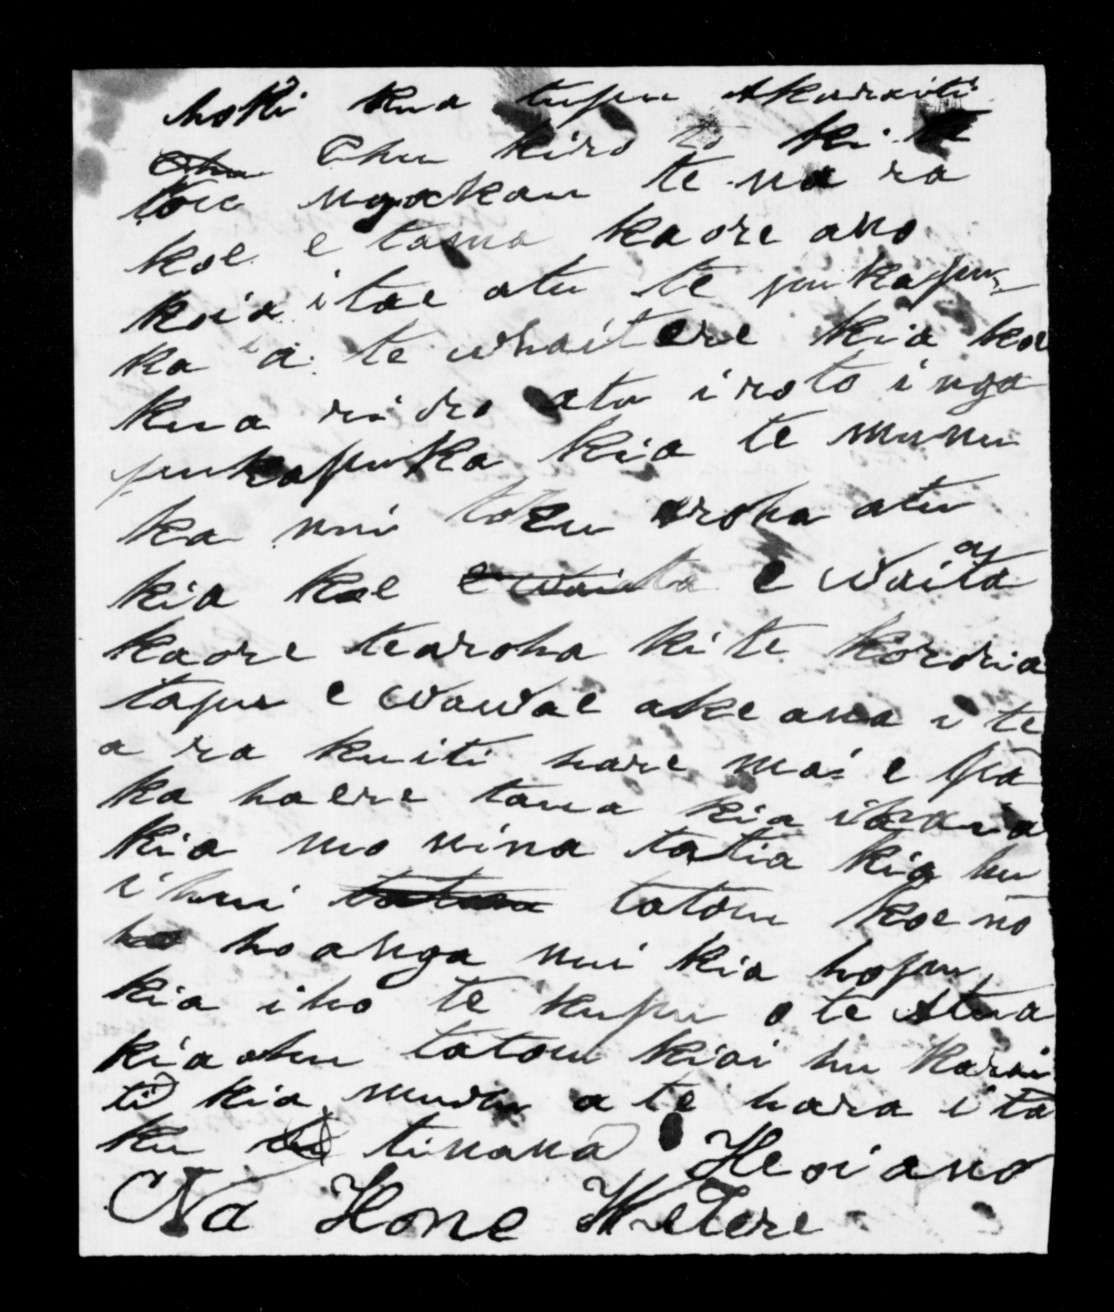 hoki kua tupu Akaraiti
ahu Ahu kiro to ki te
tou ngakau te na ra
koe e tama kaore ano
koia itae atu te pukapu
ka a te whaitere kia koe
kua riro atu i roto i nga
pukapuka kia te munu
ka nui toku aroha atu
kia koe e waita e Waita
kaore tearoha ki te kororia
tapu e wawae ake ana i te
a ra kuiti hare mai e Pa
ka haere taua kia
kia mo nina tatia kia hu
ihui tatou koe no
hoanga nui kia hopu
kia iho te kupu o te Atua
kiaahu tatou kiai hu karai
ti kia muru a te hara i ta
ku tinana Heoi ano
Na Hone Wetere